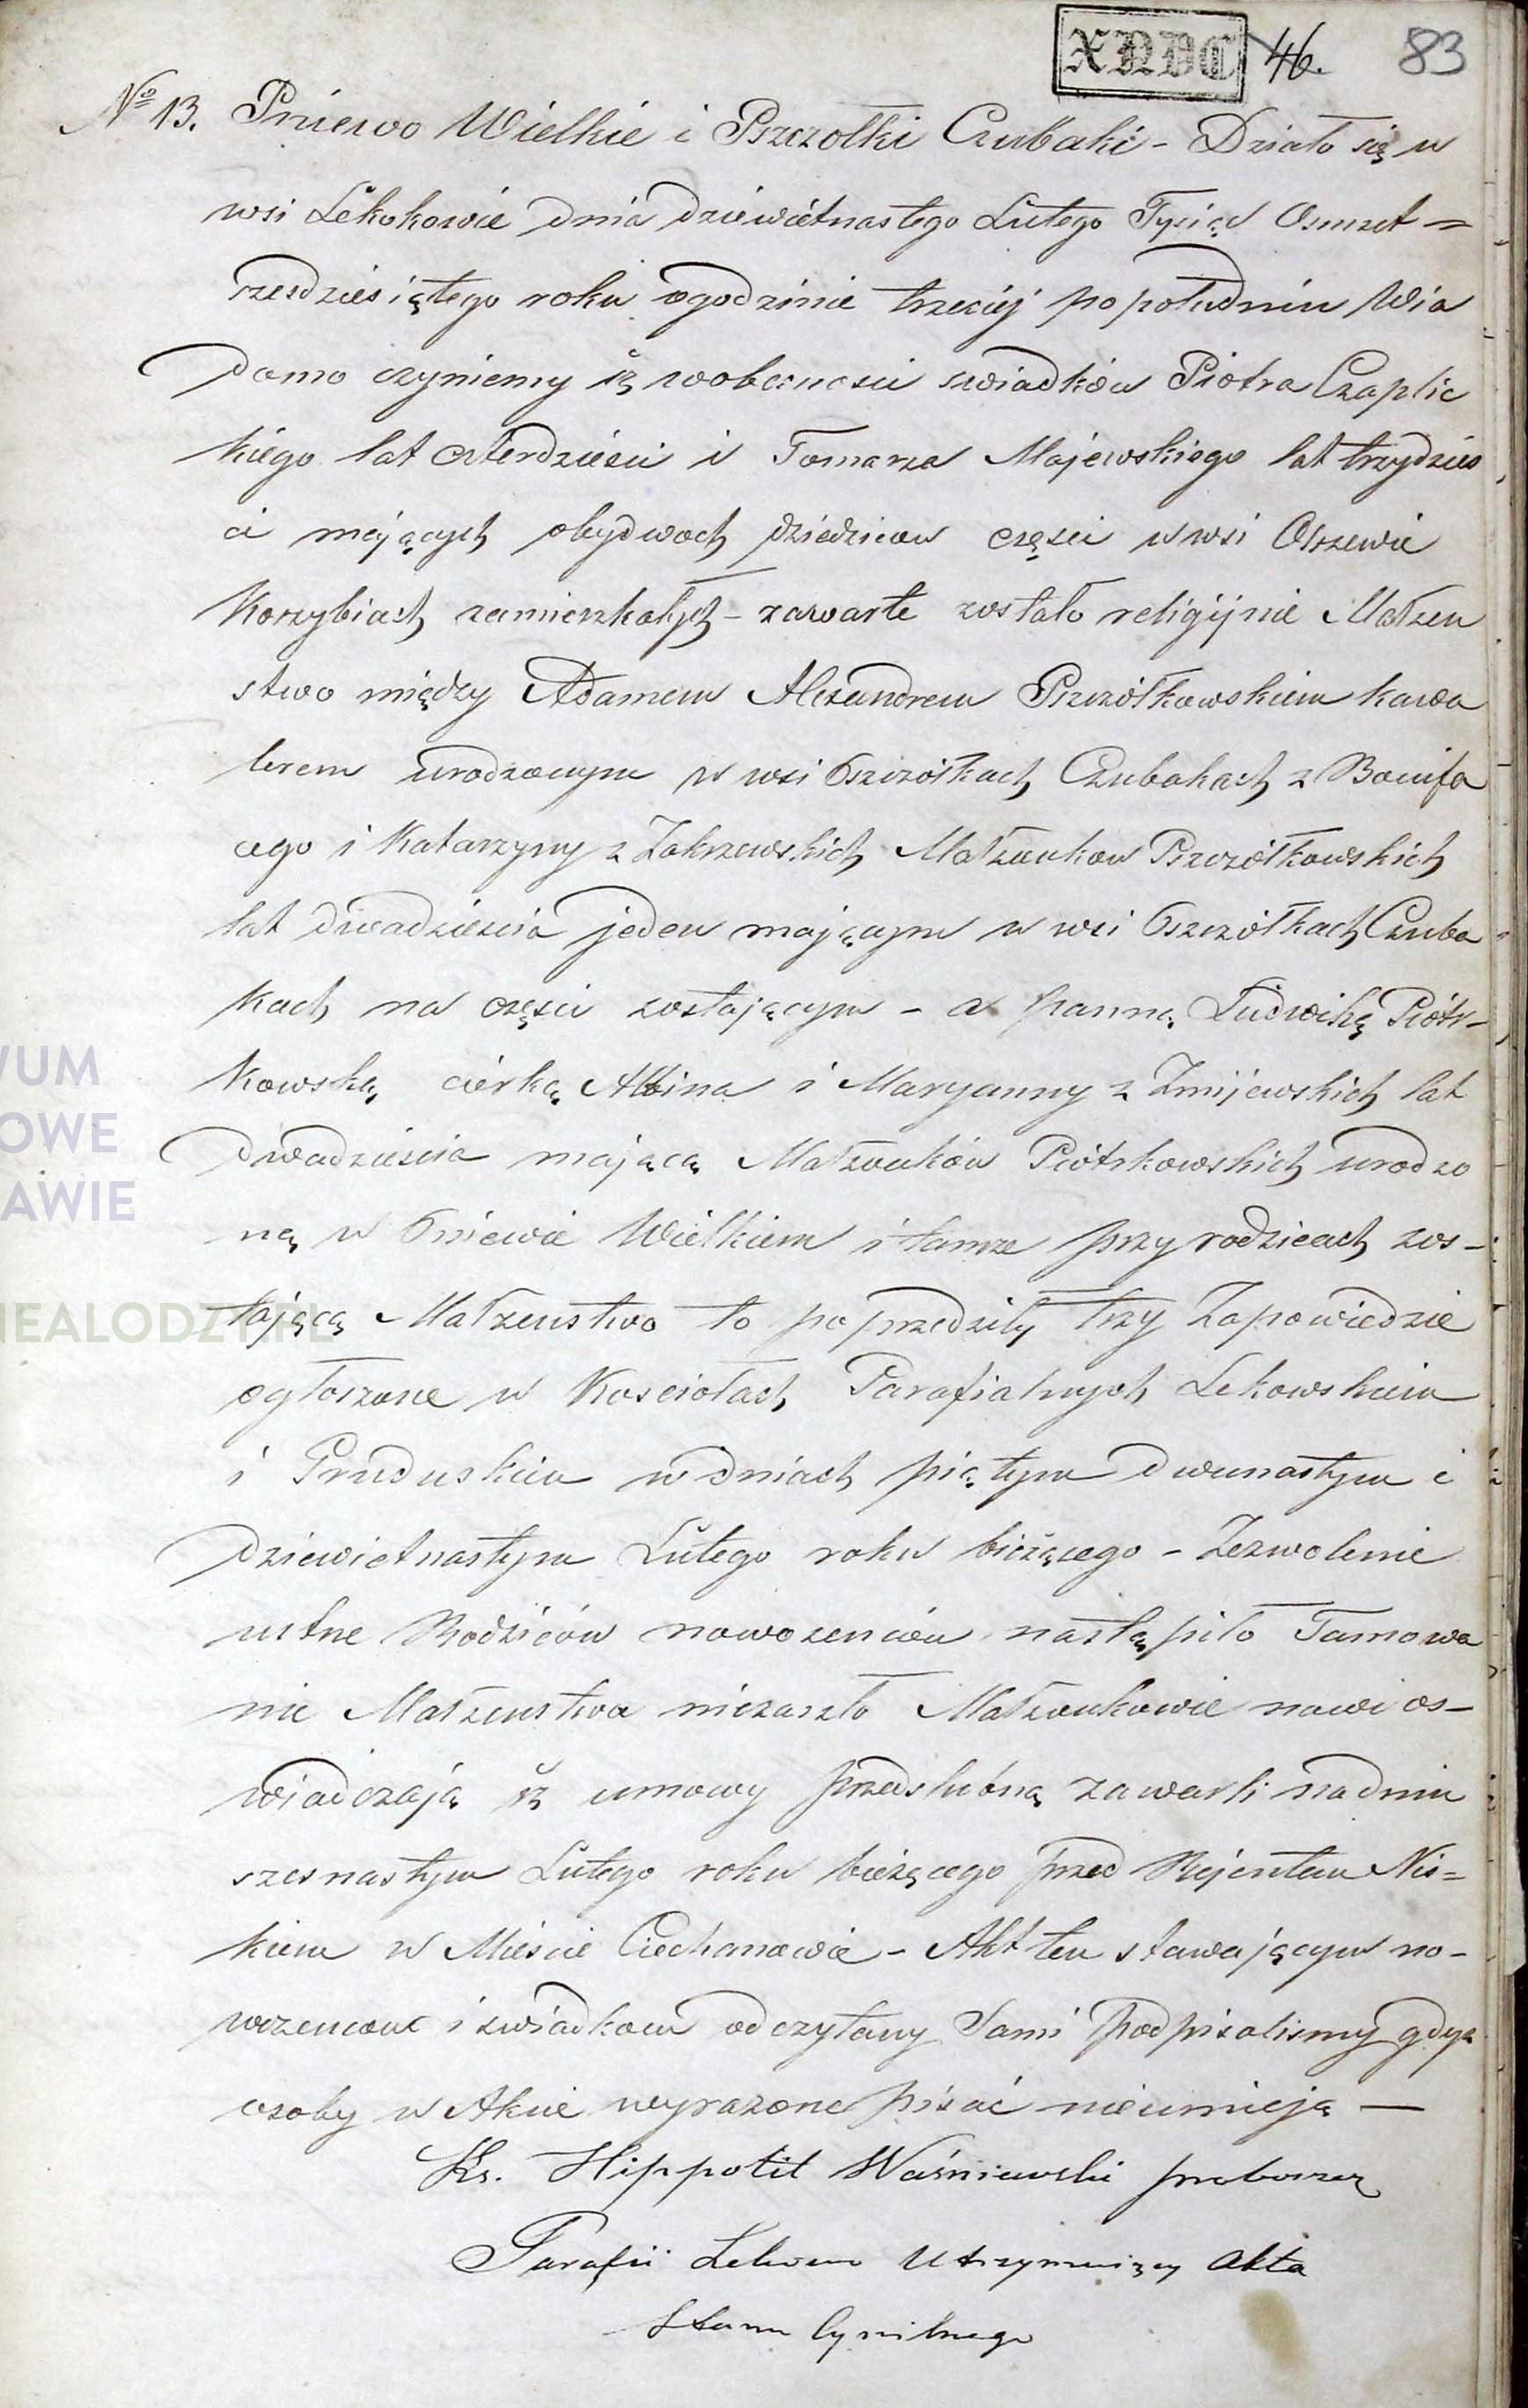 XNDC 46. 83
№ 13. Pniewo Wielkie i Pszczołki Czubaki - Działo się w
wsi Lekokowie dnia dziewietnastego Lutego Tysiąc Osmset =
szesdziesiątego roku ogodzinie trzeciej popołudniu Wia
domo czyniemy iż wobecnosci swiadków Piotra Czaplic
kiego lat czterdziesci i Tomasza Majewskiego lat trzydzies
ci mających obydwoch dziedzicow części w wsi Olszewie
Korzybiach zamieszkałych - zawarte zostało religijnie Małżen
stwo między Adamem Alexandrem Pszczółkowskiem kawa
lerem urodzonym w wsi Pszczółkach Czubakach z Bonifa
cego i Katarzyny z Zakrzewskich Małżonkow Pszczółkowskich
lat dwadziescia jeden mającym w wsi Pszczółkach Czuba
kach na części zostającym - a panną Ludwiką Piótr-
kowską córką Albina i Maryanny z Zmijewskich lat
dwadziescia mającą Małżonków Piótrkowskich urodzo
ną w Pniewie Wielkiem i tamze przy rodzicach zos-
tającą Małżenstwo to poprzedziły trzy Zapowiedzie
ogłoszone w Kosciołach Parafialnych Lekowskiem
i Pruduskiem w dniach piątym dwunastym i
dziewietnastym Lutego roku bieżącego - Zezwolenie
ustne Rodziców nowozencow nastąpiło Tamowa
nie Małżenstwa niezaszło Małżonkowie nowi os-
wiadczają iż umowy przedslubną zawarli na dniu
szesnastym Lutego roku bieżącego przed Rejentem Nis-
kiem w Miescie Ciechanowie - Akt ten stawającym no-
wozencom i swiadkom odczytany Sami podpisalismy gdyz
osoby w Akcie wyrazone pisać nieumieją —
Ks. Hippolit Waśniewski proboszcz
Parafii Lekowo Utrzymuiący Akta
Stanu Cywilnego
WUM
OWE
AWIE
NEALODZY.PL